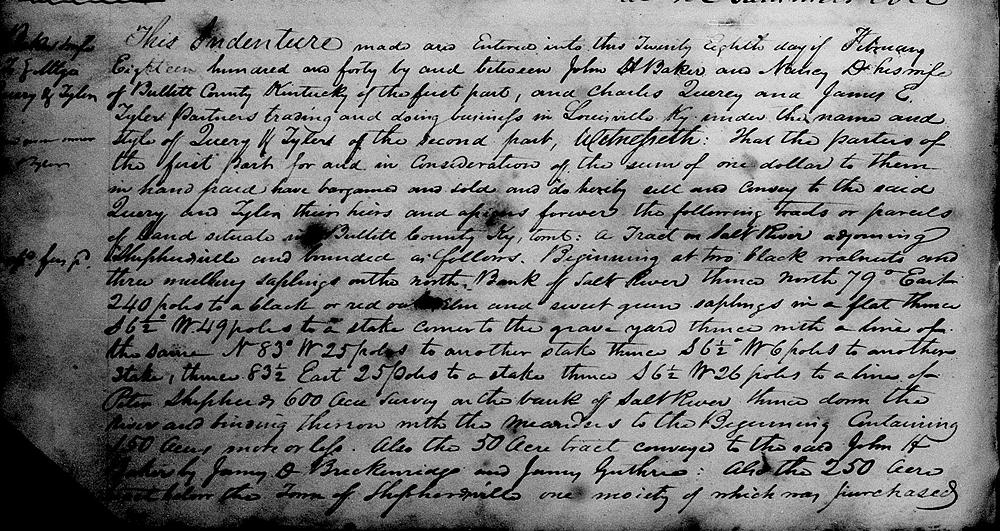 This Indenture made and Entered into this Twenty Eighth day of February
Eighteen hundred and forty by and between John H Baker and Nancy D his wife
of Bullitt County Kentucky of the first part, and Charles Querey and James E.
Tyler Partners trading and doing business in Louisville Ky under the name and
Style of Query & Tyler of the Second part, Witnesseth: That the parties of
the first part for and in Consideration of the sum of one dollar to them
in hand paid have bargained and sold and do hereby sell and convey to the said
Query and Tyler their heirs and assigns forever the following tracts or parcels
of Land situate in Bullitt County Ky, towit: a Tract on Salt River adjoining
Shepherdsville and bounded as follows. Beginning at two black walnuts and
three mulbery saplings on the north Bank of Salt River thence North 79° East
240 poles to a black or red oak Elm and sweet gum saplings in a flat thence
S6½° W 49 poles to a stake corner to the grave yard thence with a line of
the same N 83° W 25 poles to another stake thence S6½° W 6 poles to another
Stake, thence 83½ East 25 Poles to a stake thence S6½ W 26 poles to a line of
Peter Shepherds 600 Acre Survey on the bank of Salt River thence down the
River and binding thereon with the Meanders to the Beginning Containing
150 Acres more or less. Also the 50 Acre tract conveyed to the said John H
Baker by James D Breckenridge and James Guthrie: Also the 250 Acre
tract below the Town of Shepherdsville one moiety of which was purchased